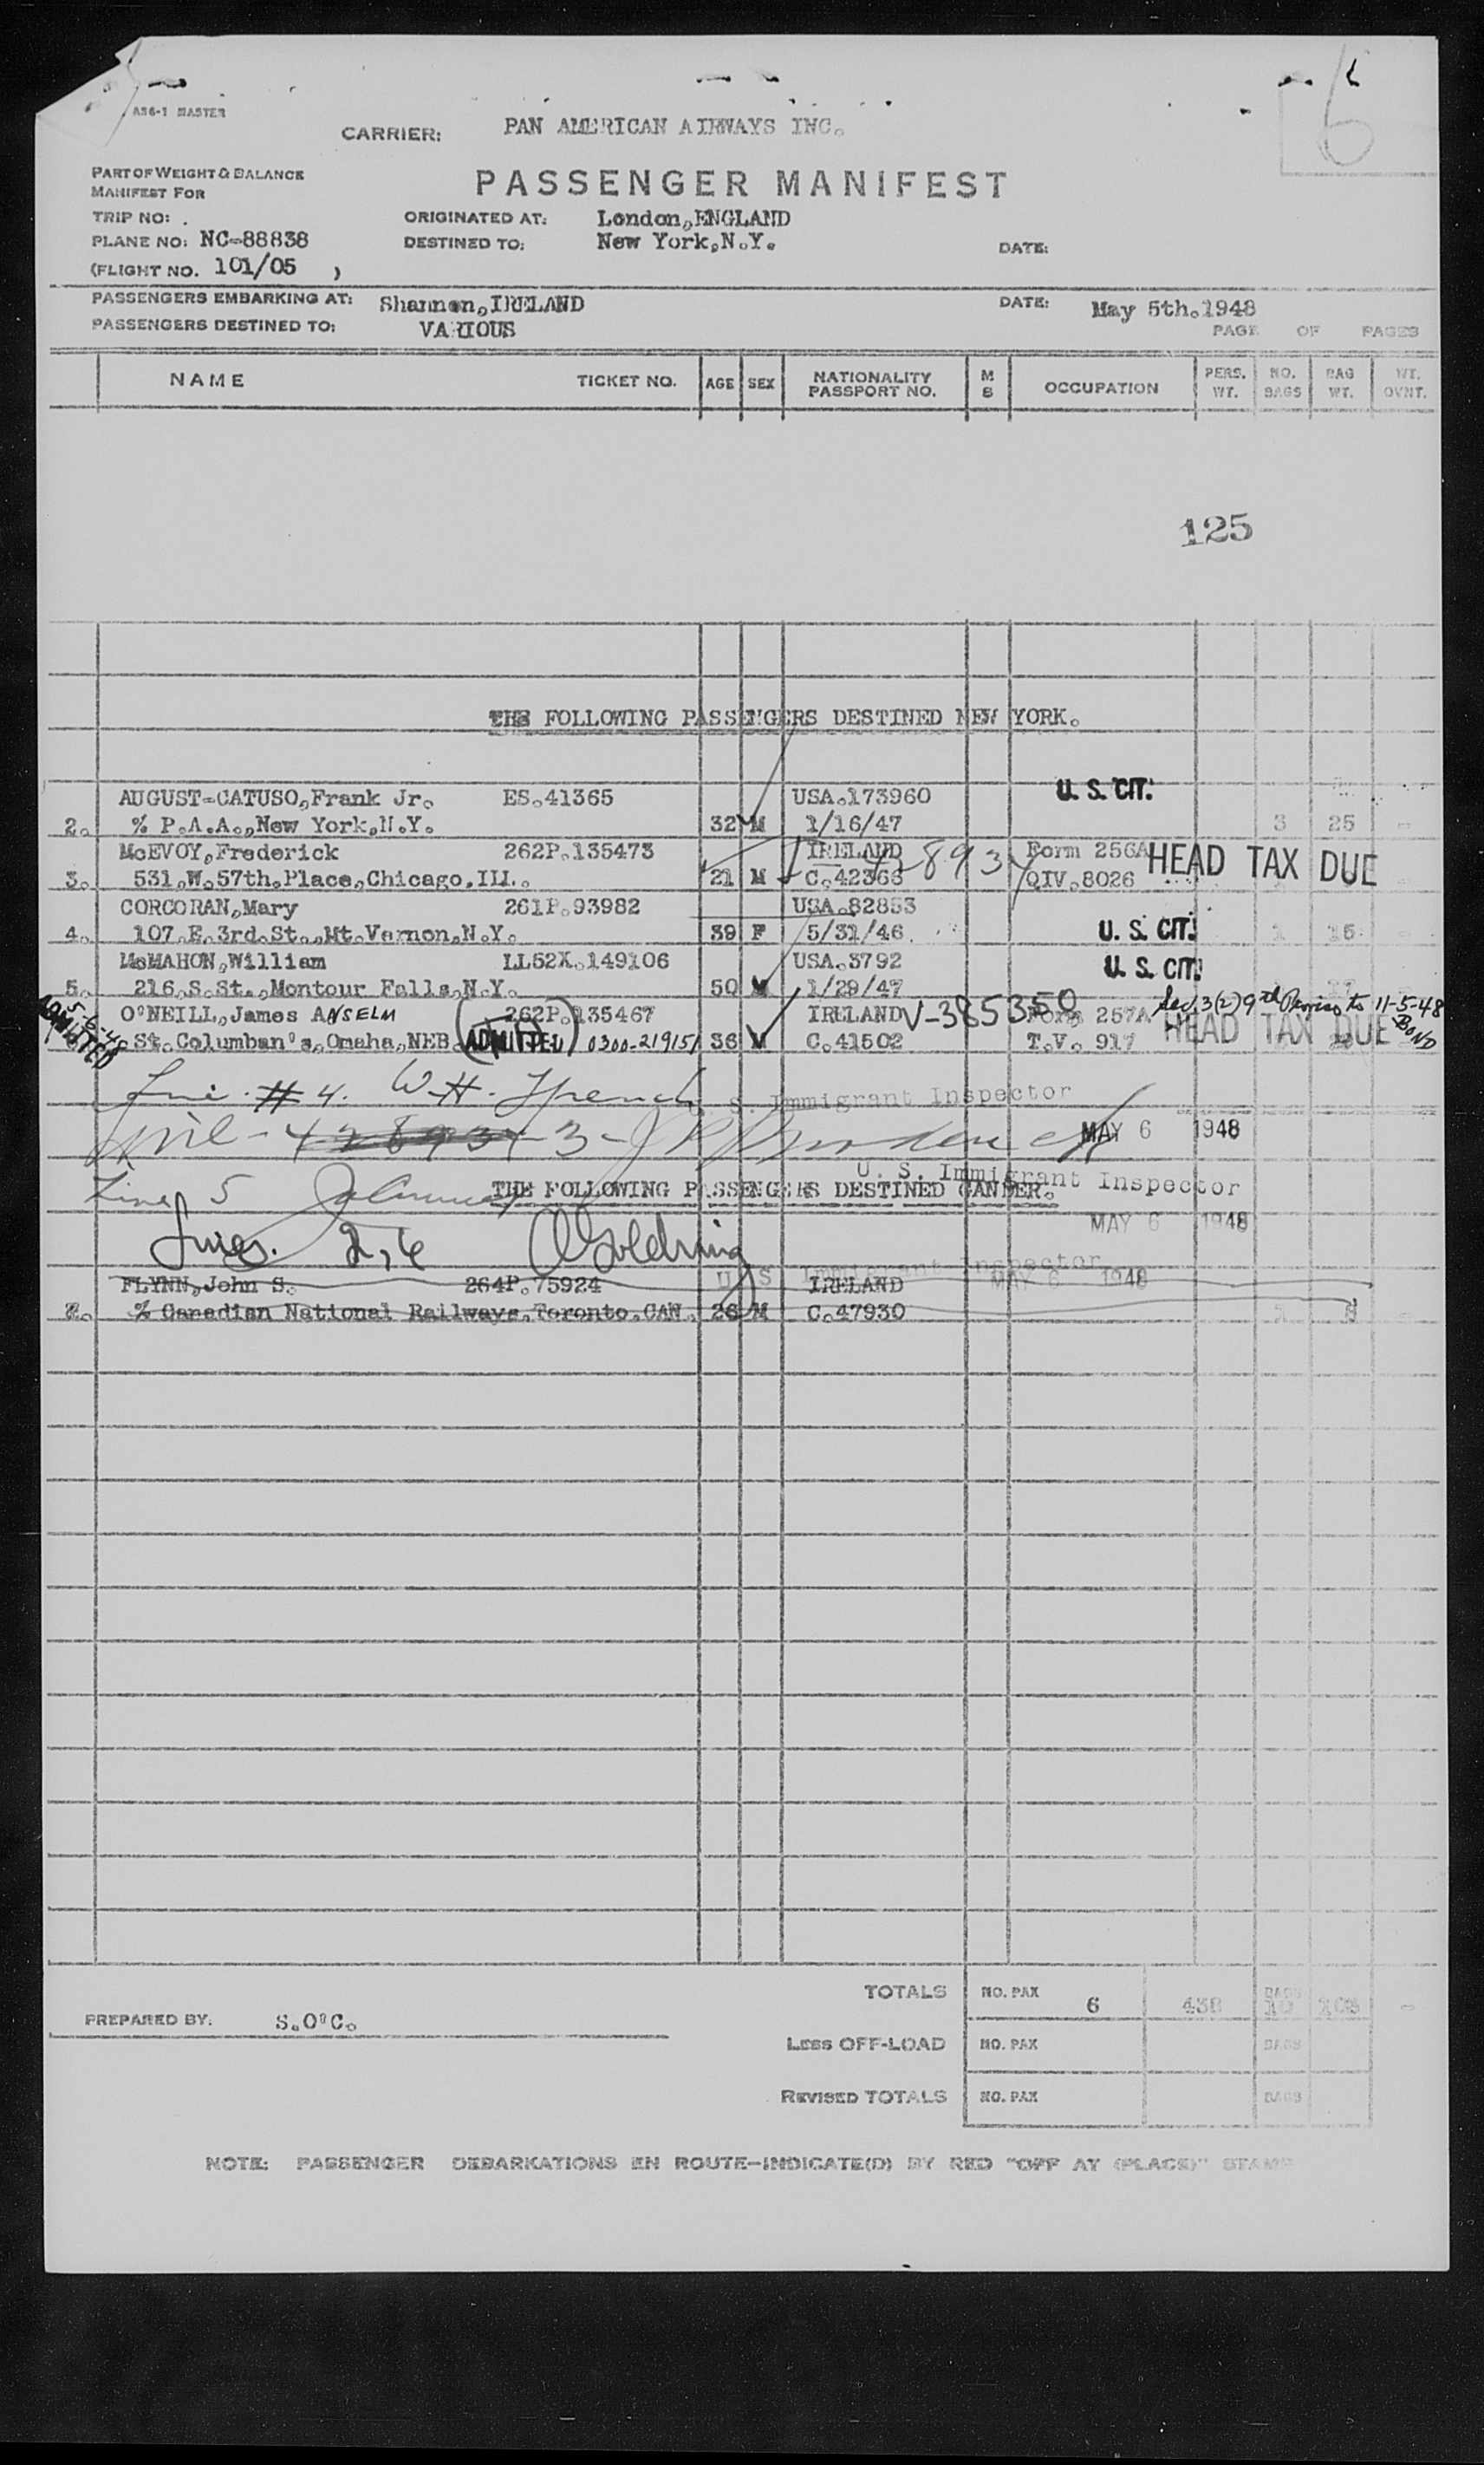 6
A36-1 MASTER
CARRIER: PAN AMERICAN AIRWAYS INC.
PART OF WEIGHT & BALANCE
MANIFEST FOR
PASSENGER MANIFEST
TRIP NO: . ORIGINATED AT: London, ENGLAND
PLANE NO: NC-88838 DESTINED TO: New York, N.Y. DATE:
(FLIGHT NO. 101/05 )
PASSENGERS EMBARKING AT: Shannon, IRELAND DATE: May 5th. 1948
PASSENGERS DESTINED TO: VARIOUS PAGE OF PAGES
NAME TICKET NO. AGE SEX NATIONALITY PASSPORT NO. M S OCCUPATION PERS. WT. NO. BAGS BAG WT. WT. OVNT.
125
THE FOLLOWING PASSENGERS DESTINED NEW YORK.
AUGUST-CATUSO, Frank Jr. ES.41365 USA.173960 U. S. CIT.
2. % P.A.A., New York, N.Y. 32 M 1/16/47 3 25 -
McEVOY, Frederick 262P.135473 IRELAND Form 256A HEAD TAX DUE
3. 531.W.57th.Place, Chicago. ILL. 21 M C.42366 QIV.8026
CORCORAN, Mary 261P.93982 USA.82853
4. 107.E.3rd.St., Mt.Vernon, N.Y. 39 F 5/31/46. U. S. CIT. 1 -
McMAHON, William LL52X.149106 USA.3792 U. S. CIT.
5. 216.S.St., Montour Falls, N.Y. 50 M 1/29/47
O'NEILL, James ANSELM 262P.135467 IRELAND V-385350 Form 257A Sec. 3(2) 9th Proviso to 11-5-48 BOND
ADMITTED 5-6-48 St. Columban's, Omaha, NEB. (ADMITTED) 0300-219151 36 M C.41502 T.V. 917 HEAD TAX DUE
Line #4. W.H. French U. S. Immigrant Inspector
Line 3 - MAY 6 1948
U. S. Immigrant Inspector
Line 5 THE FOLLOWING PASSENGERS DESTINED GANDER.
MAY 6 1948
Lines. 2, 6 Goldring
U S Immigrant Inspector MAY 6 1948
FLYNN, John S. 264P.75924 IRELAND
7. % Canadian National Railways, Toronto. CAN. 26 M C.47930
TOTALS NO. PAX 6 438 BAGS 
PREPARED BY: S.O'C.
LESS OFF-LOAD NO. PAX BAGS
REVISED TOTALS NO. PAX BAGS
NOTE: PASSENGER DEBARKATIONS EN ROUTE-INDICATE(D) BY RED "OFF AT (PLACE)" STAMP